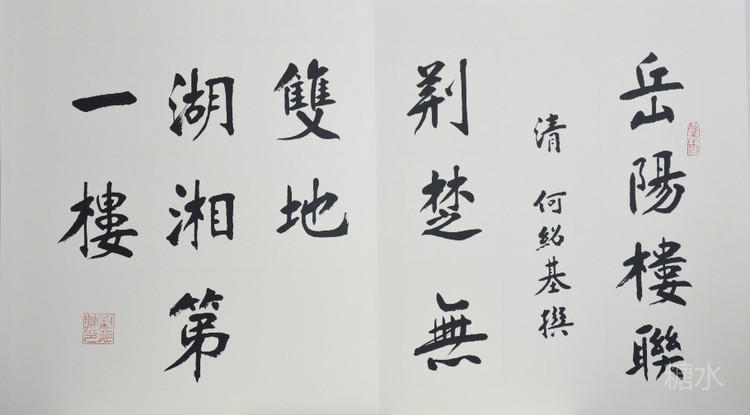 岳陽樓聯
清 何紹基撰
荆楚無
雙地
湖湘第
一樓
糖水